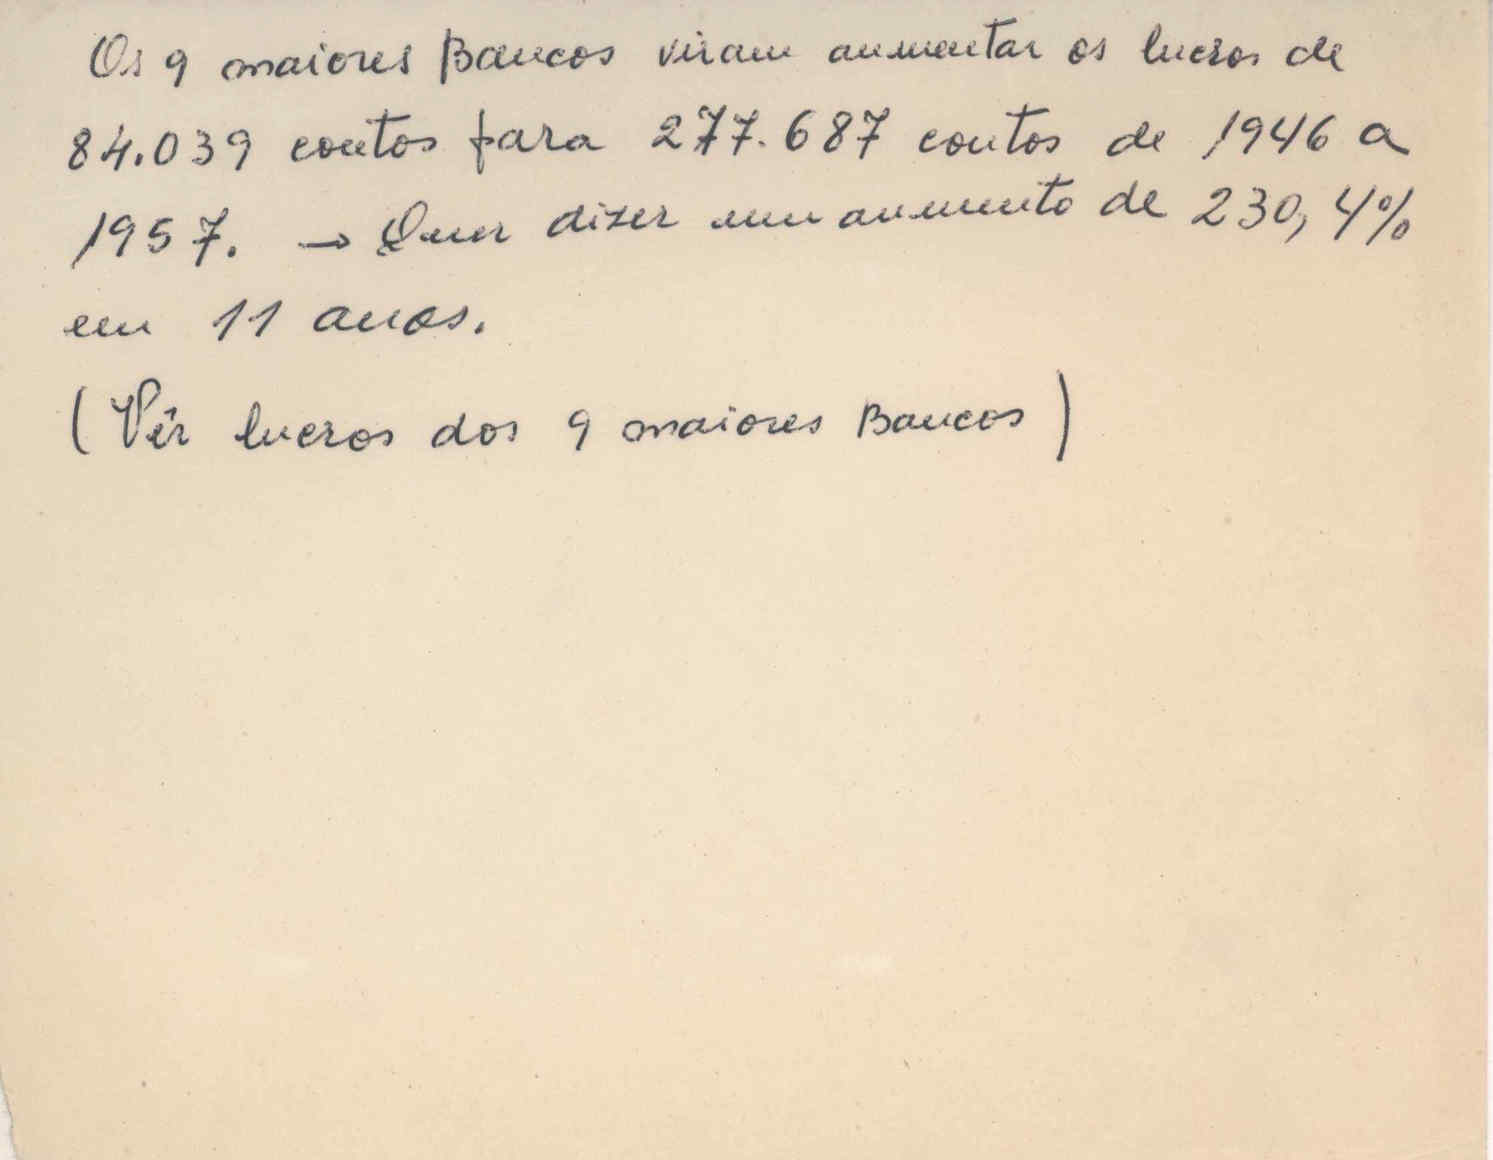 Os 9 maiores Bancos viram aumentar os lucros de
84.039 contos para 277.687 contos de 1946 a
1957. → Quer dizer um aumento de 230,4%
em 11 anos.
(Vêr lucros dos 9 maiores Bancos)